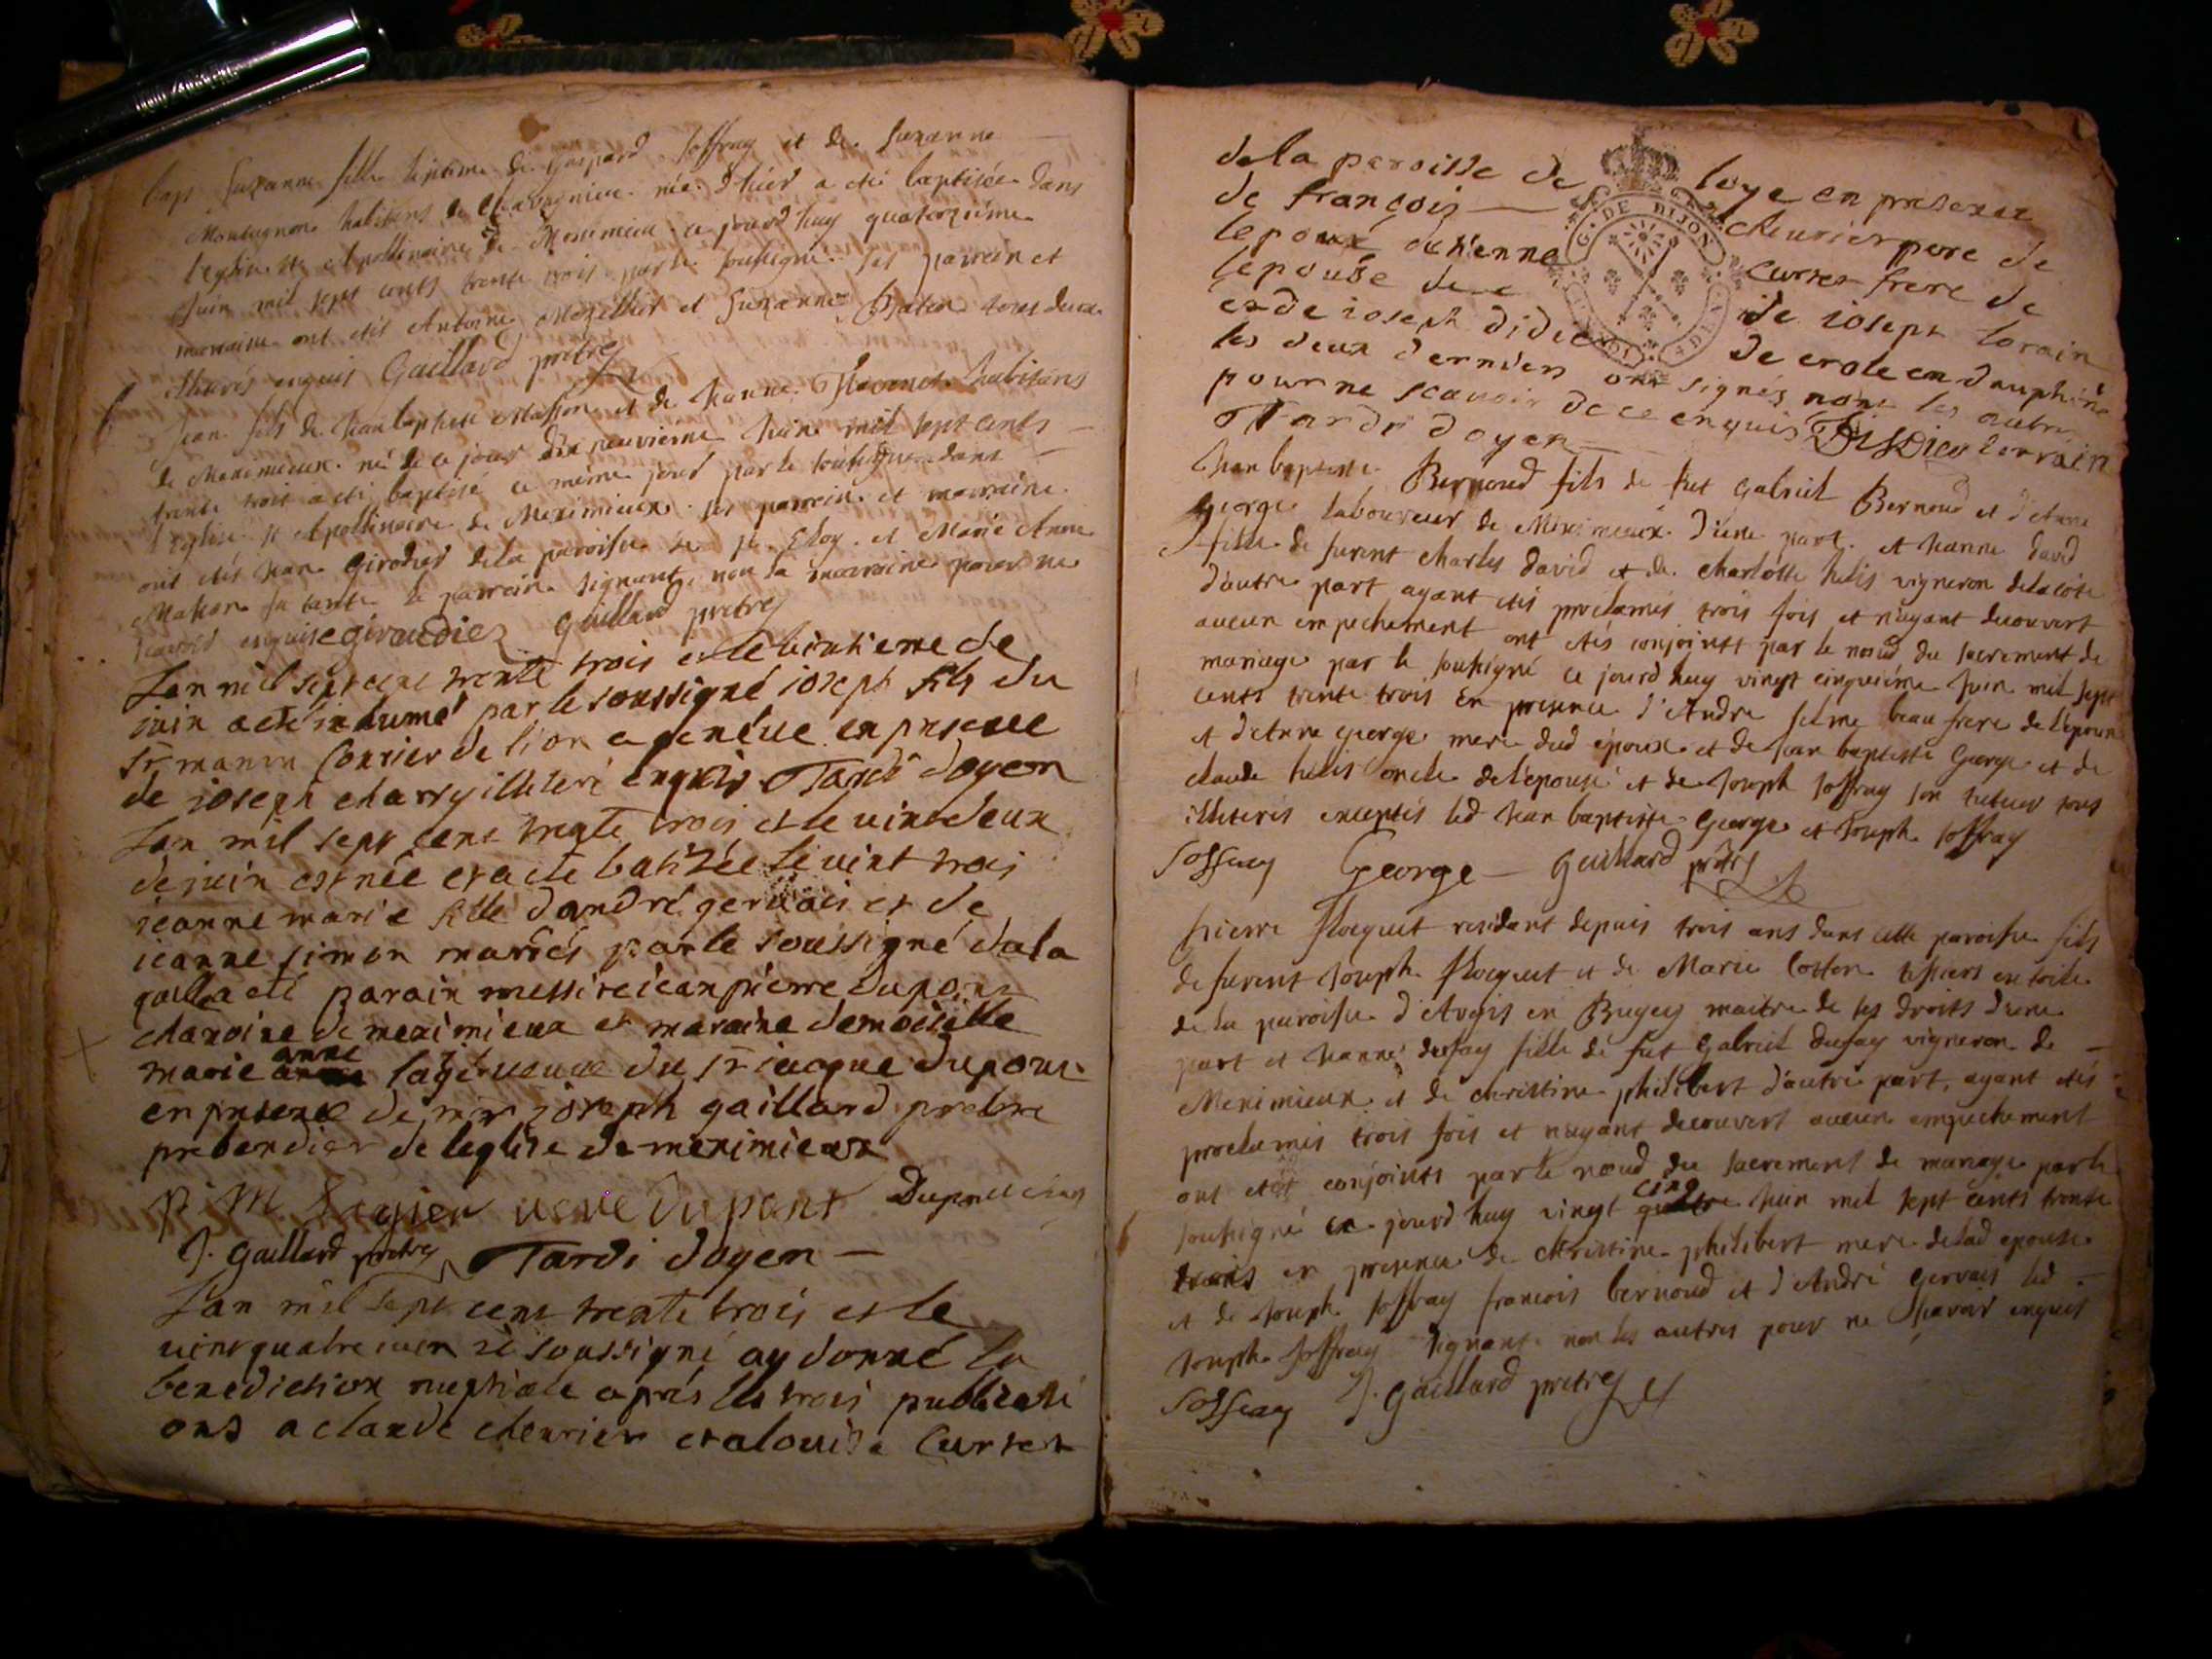 bap Suzanne fille legitime de Gaspard Joffray et de Suzanne
Montagnon habitans de Chavagnieu née d'hier a eté baptisée dans
l'eglise St Apollinaire de Meximieux ce jourd'huy quatorzième
Juin mil sept cents trente trois par le soussigné ses parrein et
marraine ont etés Antoine et Suzanne tous deux
illiterés enquis Gaillard pretre
Jean fils de Jean baptiste Masson et de Jeanne habitans
de Meximieux né de ce jour dix neuvieme Juin mil sept cents
trente trois a eté baptisé ce même jour par le soussigné dans
l'eglise St Apollinaire de Meximieux ses parrein et marraine
ont etés Jean Girodier de la paroisse de St Eloy et Marie Anne
Masson sa tante le parrein signant non la marraine pour ne
scavoir enquise giraudier Gaillard pretre
Lan mil sept cent trente trois et le vintieme de
juin a eté inhumé par le soussigné ioseph fils du
Sr manin Courier de lion a geneve en presence
de ioseph charvy illiteré enquis Tardi doyen
Lan mil sept cent trente trois et le vint deux
de juin est née et a eté batisée le vint trois
ieanne marie fille d'andré gervais et de
ieanne simon mariés par le soussigné de la
quelle a eté parain messire iean pierre dupont
chanoine de meximieux et maraine demoiselle
anne
marie lagier veuve du Sr iacque dupont
en presence de mre ioseph gaillard prebtre
prebendier de leglise de meximieux
M Lagier veuve Dupont Dupont
J. Gaillard pretre Tardi doyen
Lan mil sept cent trente trois et le
vint quatre iuin ie soussigné ay donné la
benediction nuptiale aprés les trois publicati
ons a claude chevrier et a louise Curtet
de la paroisse de loye en presence
de françois chevrier pere de
lepoux detienne Curtet frere de
lepouse de ioseph lorain
et de ioseph didier de crole en dauphiné
les deux derniers ont signés non les autres
pour ne scavoir de ce enquis Didier lorrain
Tardi doyen
G. DE DIJON
Jean baptiste Bernoud fils de feu Gabriel Bernoud et d'Anne
George laboureur de Meximieux d'une part et Jeanne david
fille de furent Charles david et de Charlotte helis vigneron de la cote
d'autre part ayant etés proclamés trois fois et n'ayant decouvert
aucun empechement ont etés conjoints par le nœud du sacrement de
mariage par le soussigné ce jourd'huy vingt cinquième Juin mil sept
cents trente trois en presence d'Andre beau frere de l'epoux
et d'Anne George mere dud epoux et de Jean baptiste George et de
claude helis oncle de l'epouse et de Joseph Joffray son tuteur tous
illiterés exceptés led Jean baptiste George et Joseph Joffray
Joffray George Gaillard pretre
Pierre Floquet residant depuis trois ans dans cette paroisse fils
de furent Joseph Floquet et de Marie Cotton tissiers en toile
de la paroisse d'Avogis en Bugey maitre de ses droits d'une
part et Jeanne dufay fille de feu Gabriel dufay vigneron de
Meximieux et de Christine philibert d'autre part, ayant etés
proclamés trois fois et n'ayant decouvert aucun empechement
ont etés conjoints par le nœud du sacrement de mariage par le
cinq
soussigné ce jourd'huy vingt quatre Juin mil sept cents trente
trois en presence de Christine philibert mere de lad epouse
et de Joseph Joffray francois bernoud et d'André Gervais led
Joseph Joffray signant non les autres pour ne scavoir enquis
Joffray J. Gaillard pretre